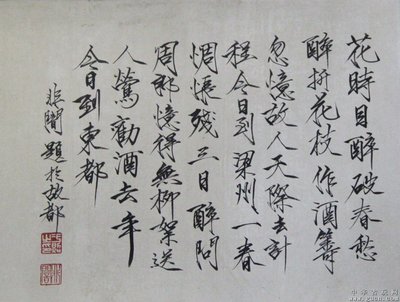 花時同醉破春愁
醉折花枝作酒籌
忽憶故人天際去計
程今日到梁州、一春
惆悵殘三日醉問
周郎憶得無柳絮送
人鶯勸酒去年
今日到東都
非闇題於故都